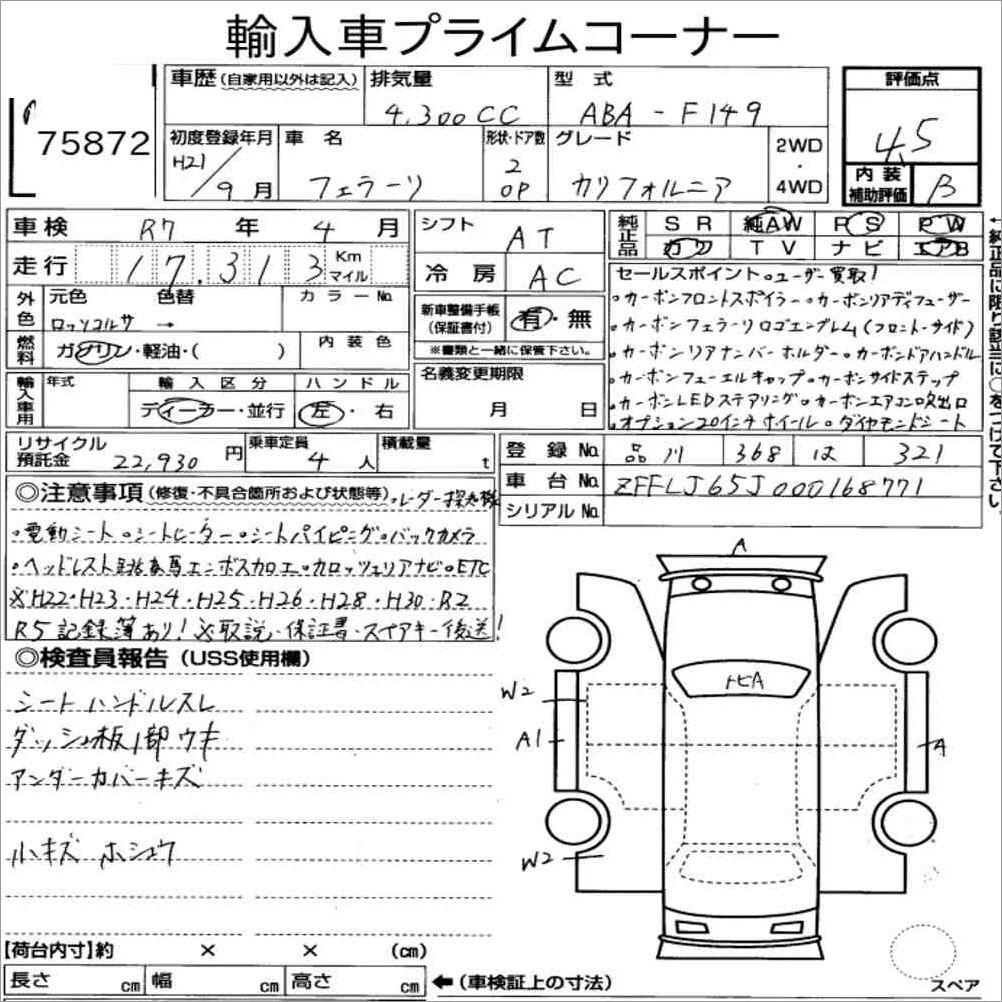 輸入車プライムコーナー
75872
車歴(自家用以外は記入) 排気量 4,300CC 型式 ABA-F149 評価点 4.5
初度登録年月 H21/9月 車名 フェラーリ 形状・ドア数 2 OP グレード カリフォルニア 2WD・4WD 内装補助評価 B
車検 R7年 4月 シフト AT 純正品 SR 純AW PS PW
走行 17.313 Km マイル 冷房 AC カワ TV ナビ エアB
←純正品に限り該当に○をつけて下さい。
外色 元色 色替 カラーNo. ロッソコルサ →
燃料 ガソリン・軽油・( ) 内装色
新車整備手帳(保証書付) 有・無
※書類と一緒に保管下さい。
セールスポイント。ユーザー買取!
・カーボンフロントスポイラー・カーボンリアディフューザー
・カーボンフェラーリロゴエンブレム(フロント・サイド)
・カーボンリアナンバーホルダー・カーボンドアハンドル
・カーボンフューエルキャップ・カーボンサイドステップ
・カーボンLEDステアリング・カーボンエアコン吹出口
・オプション20インチホイール・ダイヤモンドシート
輸入車用 年式 輸入区分 ディーラー・並行 ハンドル 左・右
名義変更期限 月 日
リサイクル預託金 22,930円 乗車定員 4人 積載量 t
登録No. 品川 368 は 321
車台No. ZFFLJ65J000168771
シリアルNo.
◎注意事項(修復・不具合箇所および状態等)・レーダー探知機
・電動シート・シートヒーター・シートパイピング・バックカメラ
・ヘッドレスト跳馬エンボスカロエ・カロッツェリアナビ・ETC
※H22・H23・H24・H25・H26・H28・H30・R2
R5記録簿あり!※取説・保証書・スペアキー後送!
◎検査員報告(USS使用欄)
シートハンドルスレ
ダッシュ板1部ウキ
アンダーカバーキズ
小キズ ホシュウ
A
トビA
W2
A1
A
W2
【荷台内寸】約 × × (cm)
長さ cm 幅 cm 高さ cm ←(車検証上の寸法)
スペア